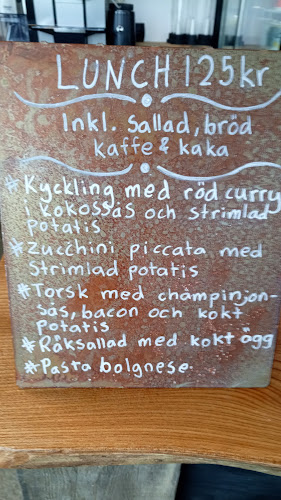 LUNCH 125kr
Inkl. sallad, bröd
kaffe & kaka
* Kyckling med röd curry
i kokossås och strimlad
potatis
* Zucchini piccata med
strimlad potatis
* Torsk med champinjon-
sås, bacon och kokt
potatis
* Räksallad med kokt ägg
* Pasta bolgnese.